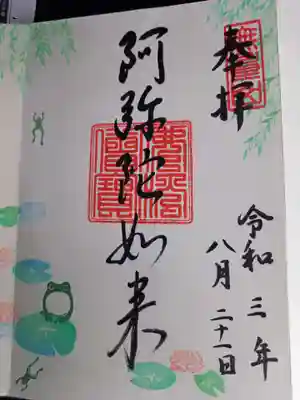 奉拝
阿弥陀如来
令和三年
八月二十一日